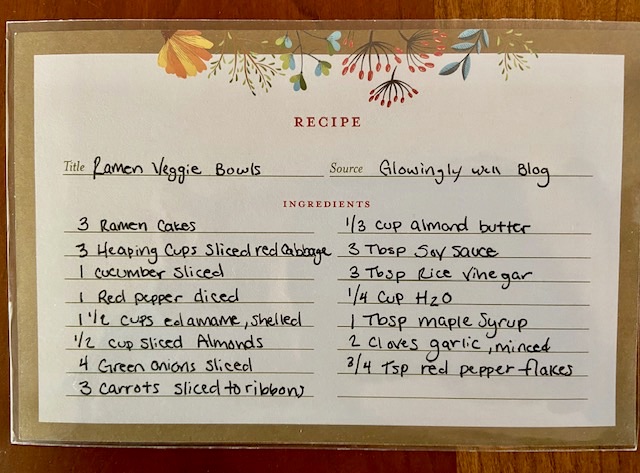 RECIPE
Title Ramen Veggie Bowls Source Glowingly Well Blog
INGREDIENTS
3 Ramen Cakes
3 Heaping Cups Sliced red Cabbage
1 cucumber Sliced
1 Red pepper diced
1 1/2 cups edamame, shelled
1/2 cup sliced Almonds
4 Green onions sliced
3 Carrots sliced to ribbons
1/3 cup almond butter
3 Tbsp Soy Sauce
3 Tbsp Rice Vinegar
1/4 Cup H2O
1 Tbsp maple Syrup
2 Cloves garlic, minced
3/4 Tsp red pepper flakes